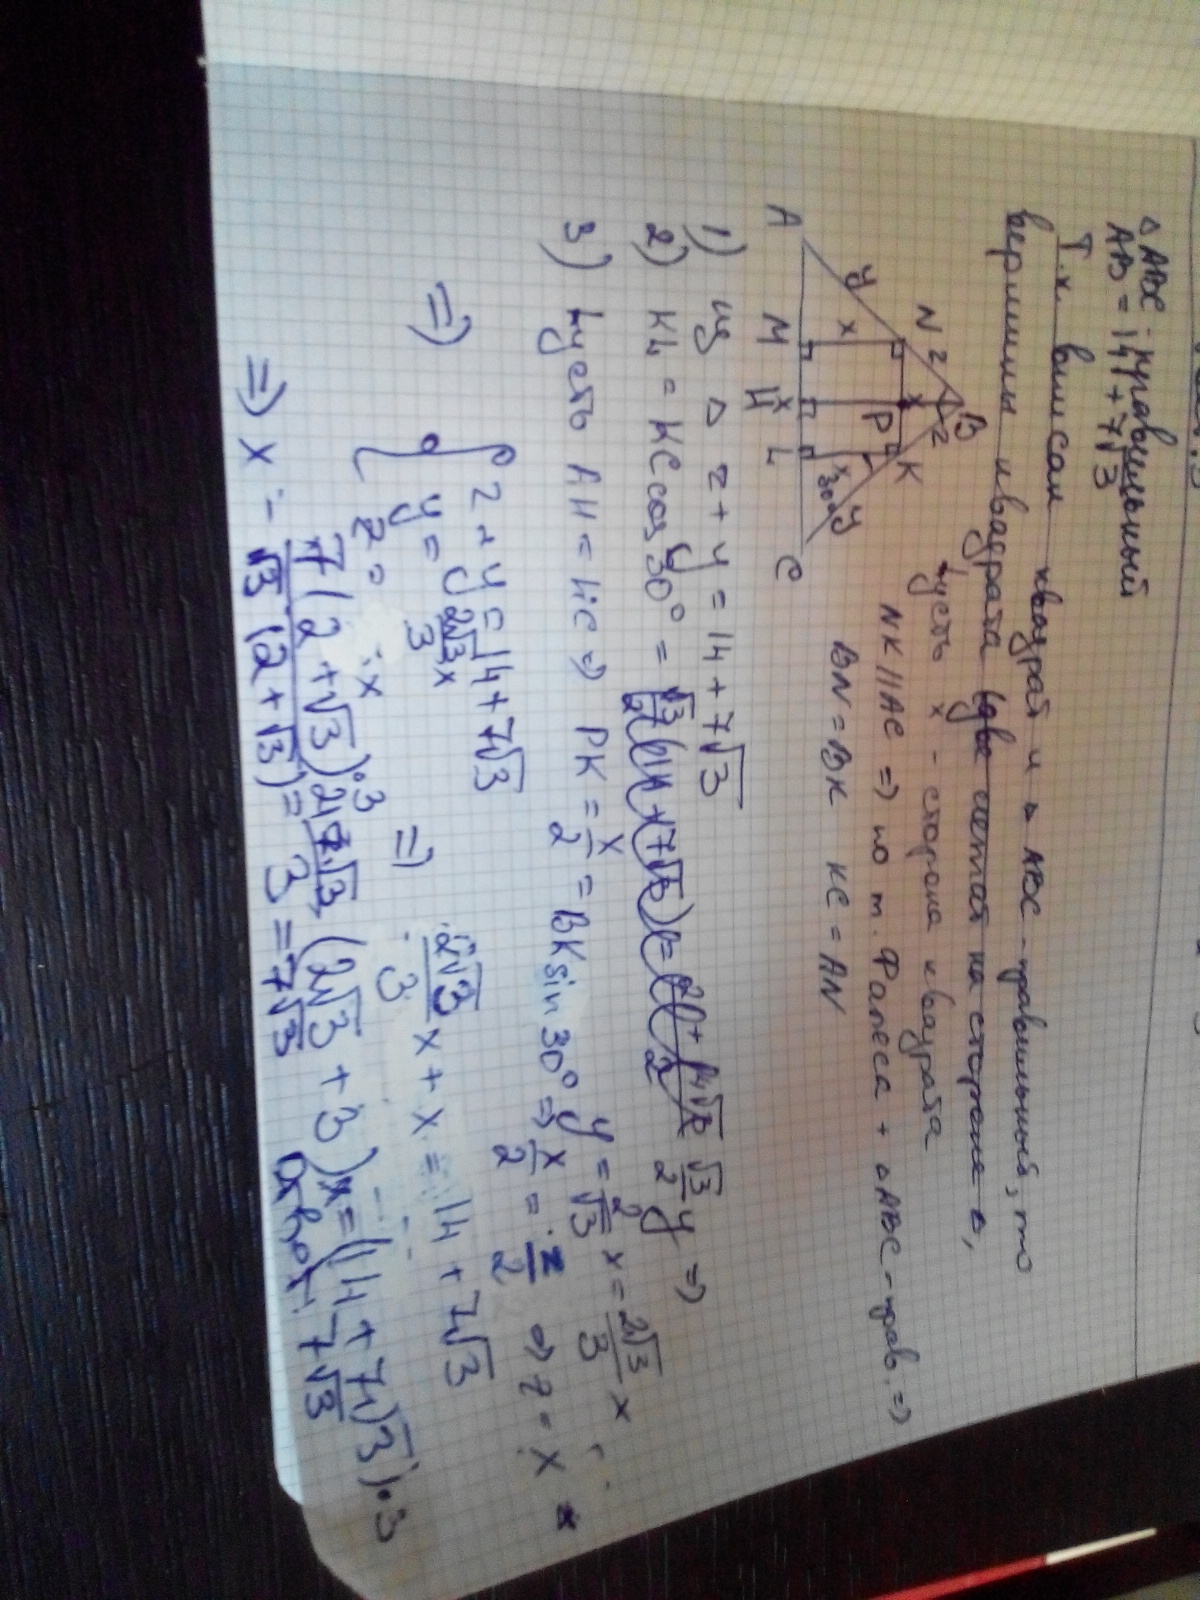 △ ABC - правильный
AB = 14 + 7√3
Т.к. вписан квадрат и △ ABC - правильный, то
вершины квадрата (две лежат на стороне),
Пусть x - сторона квадрата
NK || AC => по т. Фалеса + △ABC - прав. =>
BN = BK KC = AN
A y N z B z K y C
x x P x 30°
M H x L
1) из △ z + y = 14 + 7√3
2) KL = KC cos 30° = √3/2 y =>
y = 2/√3 x = 2√3/3 x
3) Пусть AH = HC => PK = x/2 = BK sin 30° => x/2 = z/2 => z = x
=> { z + y = 14 + 7√3
y = 2√3/3 x
z = x
=> 2√3/3 x + x = 14 + 7√3
(2√3 + 3)x = (14 + 7√3)·3
=> x = 7(2 + √3)·3 / √3(2 + √3) = 21√3/3 = 7√3
Ответ: 7√3